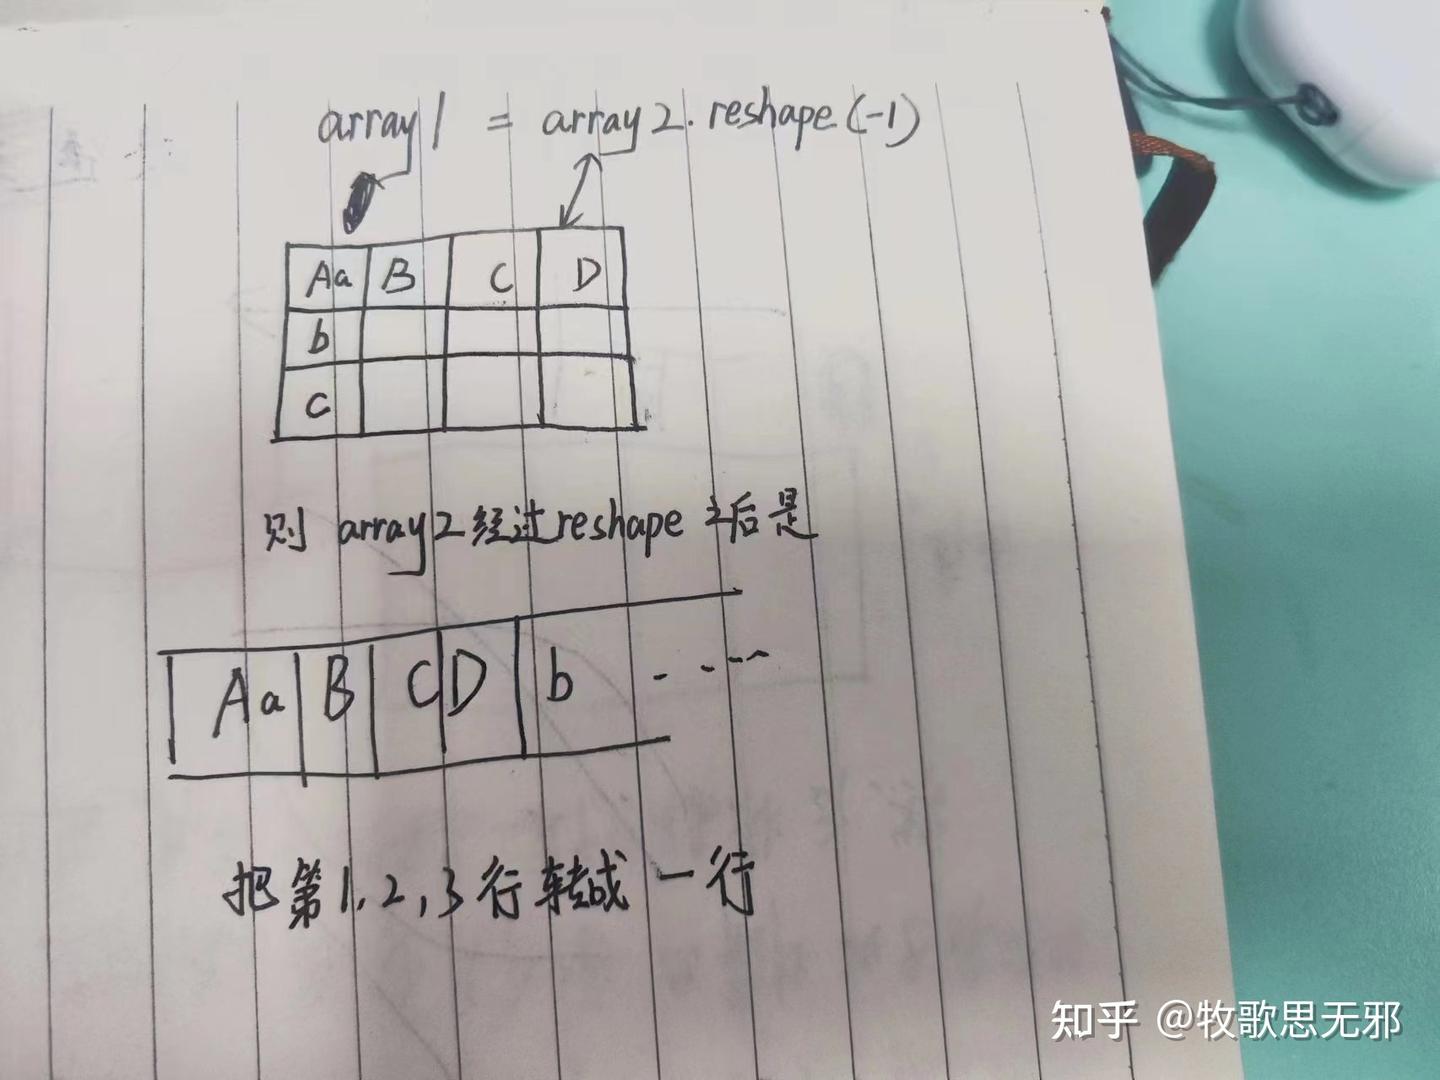 array1 = array2.reshape(-1)
Aa B C D
b
c
则 array2经过reshape之后是
Aa B C D b - - - -
把第1,2,3行转成一行
知乎 @牧歌思无邪